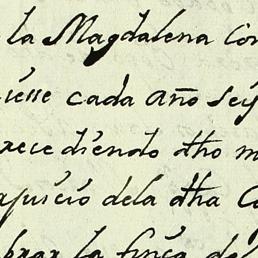 la Magdalena Con
iesse cada año sey
rece diendo dho m
ajuicio dela dha C
brar la finca del